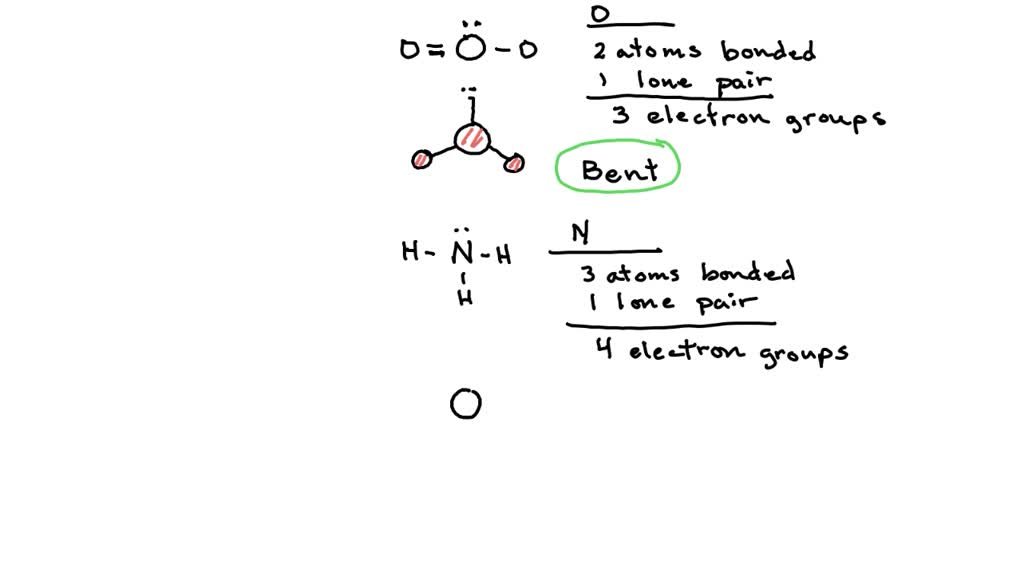 O = Ö - O
O
2 atoms bonded
1 lone pair
3 electron groups
Bent
H - N̈ - H
H
N
3 atoms bonded
1 lone pair
4 electron groups